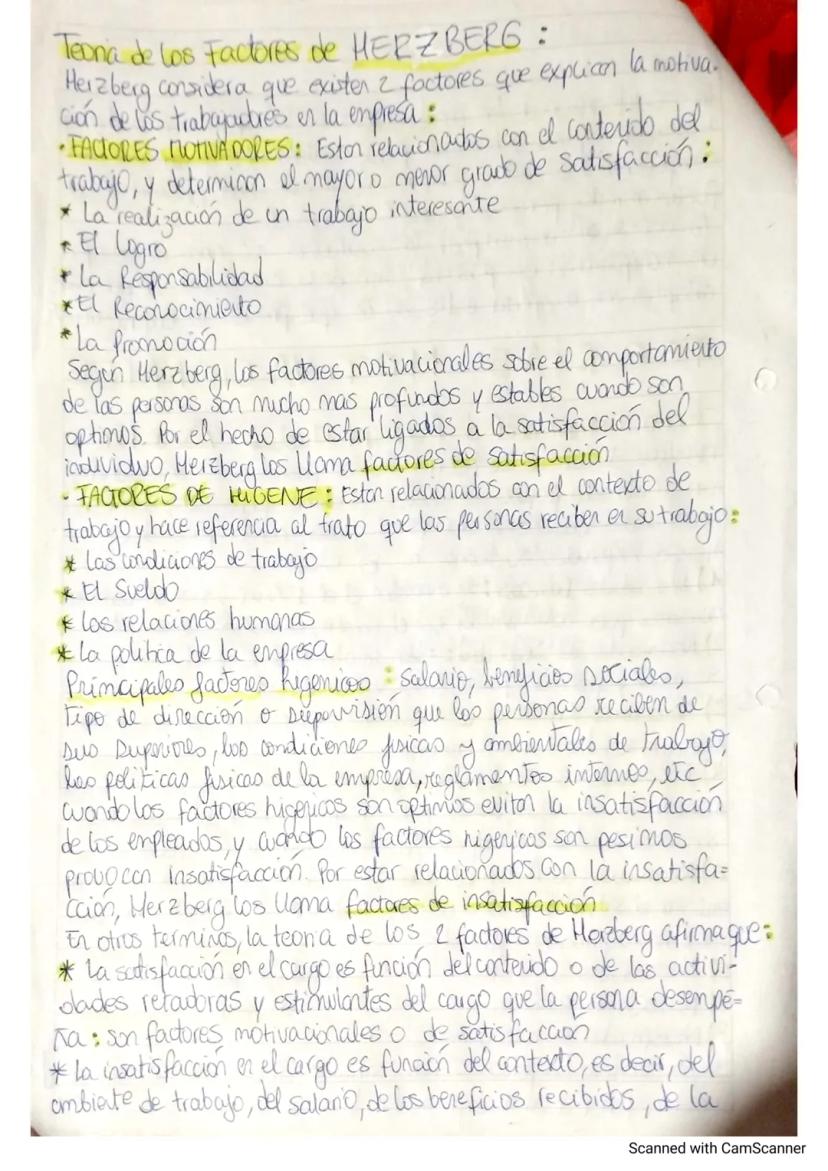 Teoria de los Factores de HERZBERG :
Herzberg considera que existen 2 factores que explican la motiva-
ción de los trabajadores en la empresa :
· FACTORES MOTIVADORES : Estan relacionados con el contenido del
trabajo, y determinan el mayor o menor grado de satisfacción :
* La realización de un trabajo interesante
* El Logro
* La Responsabilidad
* El Reconocimiento
* La Promoción
Según Herzberg, los factores motivacionales sobre el comportamiento
de las personas son mucho mas profundos y estables cuando son
optimos. Por el hecho de estar ligados a la satisfacción del
individuo, Herzberg los llama factores de satisfacción
· FACTORES DE HIGENE : Estan relacionados con el contexto de
trabajo y hace referencia al trato que las personas reciben en su trabajo :
* Las condiciones de trabajo
* El Sueldo
* Las relaciones humanas
* La politica de la empresa
Principales factores higenicos : salario, beneficios sociales,
tipo de dirección o supervisión que las personas reciben de
sus superiores, las condiciones fisicas y ambientales de trabajo,
las politicas fisicas de la empresa, reglamentos internos, etc
cuando los factores higenicos son optimos evitan la insatisfacción
de los empleados, y cuando los factores higenicos son pesimos
provocan insatisfacción. Por estar relacionados con la insatisfa-
cción, Herzberg los llama factores de insatisfacción
En otros terminos, la teoria de los 2 factores de Herzberg afirma que :
* La satisfacción en el cargo es función del contenido o de las activi-
dades retadoras y estimulantes del cargo que la persona desempe-
ña : son factores motivacionales o de satisfacción
* La insatisfacción en el cargo es función del contexto, es decir, del
ambiente de trabajo, del salario, de los beneficios recibidos, de la
Scanned with CamScanner